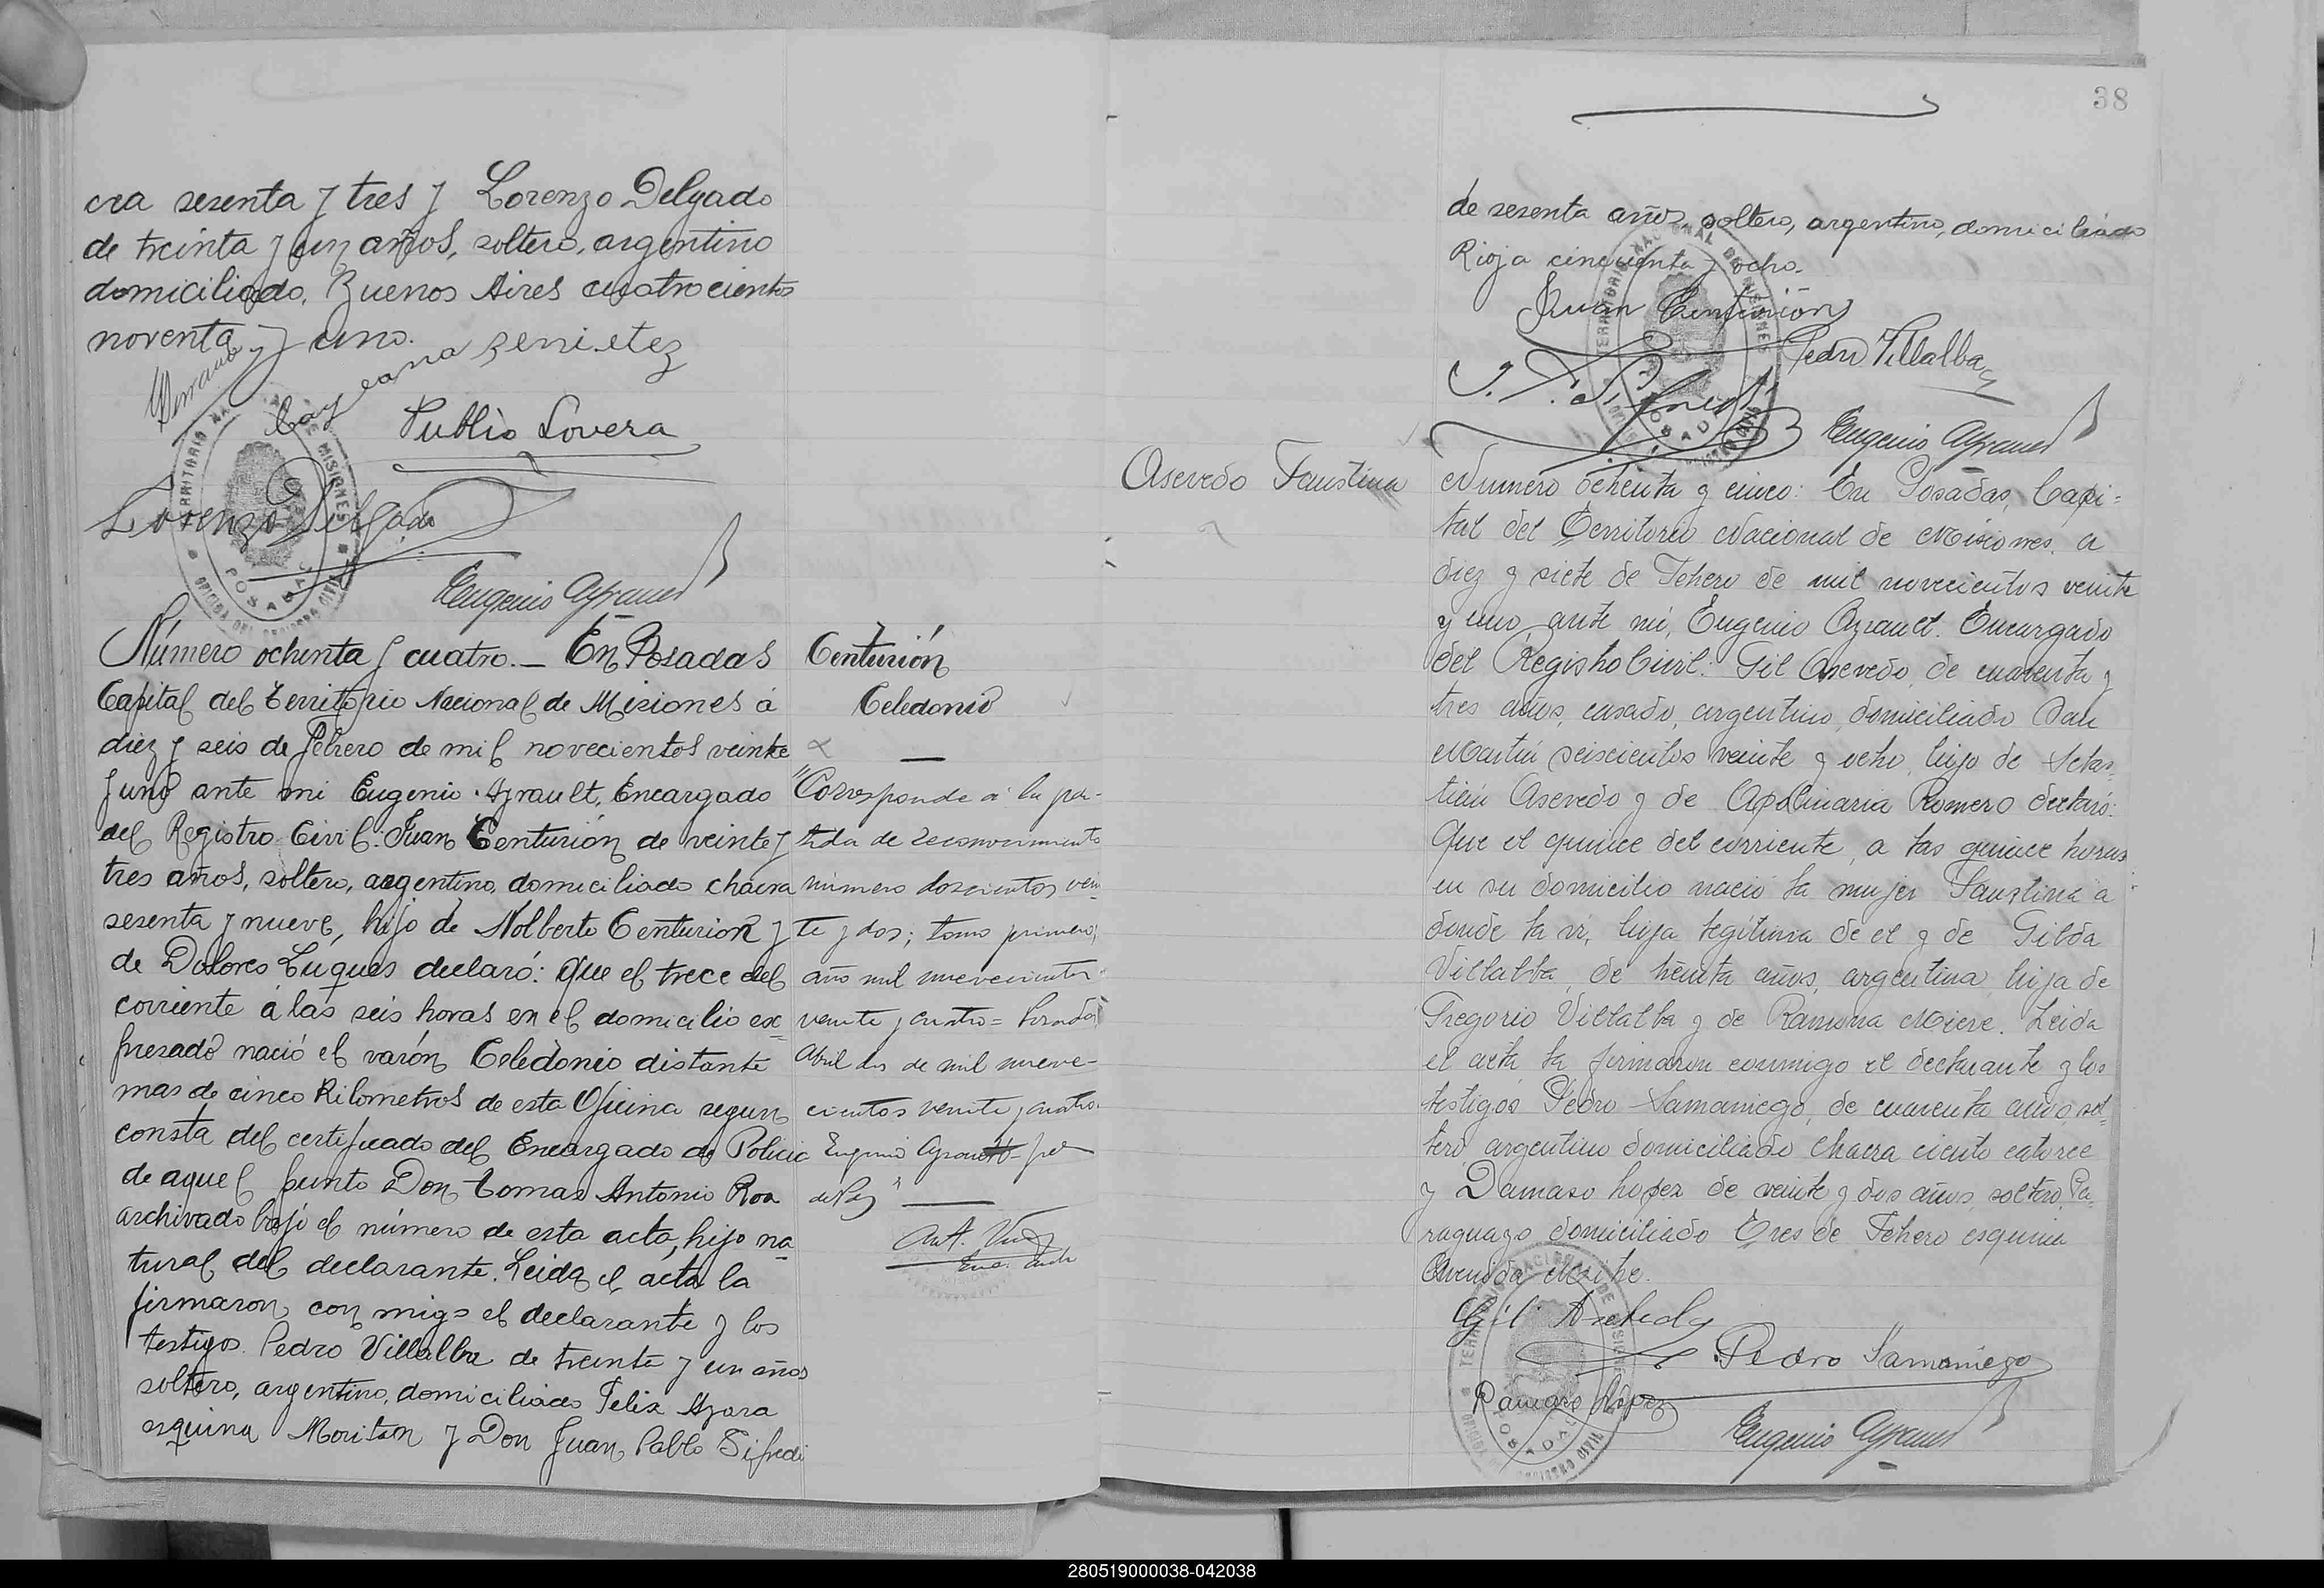 cra sesenta y tres y Lorenzo Delgado
de treinta y un años, soltero, argentino
domiciliado, Buenos Aires cuatrocientos
noventa y uno.
Cayetana Benietez
Publio Lovera
Lorenzo Delgado
Eugenio Ayrault
Número ochenta y cuatro._ En Posadas
Capital del Territorio Nacional de Misiones á
diez y seis de febrero de mil novecientos veinte
y uno ante mi Eugenio Ayrault, Encargado
del Registro Civil: Juan Centurión de veinte y
tres años, soltero, argentino, domiciliado chacra
sesenta y nueve, hijo de Nolberto Centurion y
de Dolores Luques declaró: que el trece del
corriente á las seis horas en el domicilio ex
presado nació el varón Celedonio distante
mas de cinco Kilometros de esta Oficina segun
consta del certificado del Encargado de Policia
de aquel punto Don Tomas Antonio Roa
archivado bajo el número de esta acta, hijo na
tural del declarante. Leida el acta la
firmaron con migo el declarante y los
testigos. Pedro Villalba de treinta y un años
soltero, argentino, domiciliado Felix Azara
esquina Moritan y Don Juan Pablo Sifredi
Centurión
Celedonio
"Corresponde á la par-
tida de reconocimiento
número doscientos vein
te y dos; tomo primero;
año mil novecientos
veinte y cuatro = Posadas
Abril dos de mil nove-
cientos veinte y cuatro.
Eugenio Ayrault Juez
de Paz"
38
de sesenta años, soltero, argentino, domiciliado
Rioja cincuenta y ocho.
Juan Centurión
Pedro Villalba
Eugenio Ayrault
Asevedo Faustina
Número ochenta y cinco: En Posadas, Capi-
tal del Territorio Nacional de Misiones, a
diez y siete de Febrero de mil novecientos veinte
y uno, ante mi, Eugenio Ayrault. Encargado
del Registro Civil: Gil Asevedo, de cuarenta y
tres años, casado, argentino, domiciliado San
Martin seiscientos veinte y ocho, hijo de Sebas
tián Asevedo y de Apolinaria Romero declaró:
Que el quince del corriente, a las quince horas
en su domicilio nació la mujer Faustina a
donde la vi, hija legítima de el y de Gilda
Villalba, de treinta años, argentina hija de
Gregorio Villalba y de Ramona Miere. Leida
el acta la firmaron conmigo el declarante y los
testigos Pedro Samaniego, de cuarenta años, sol
tero, argentino domiciliado Chacra ciento catorce
y Damaso Lopez de veinte y dos años, soltero, Pa
raguayo domiciliado Tres de Febrero esquina
Avenida Mitre.
Gil Asebedo
Pedro Samaniego
Damaso Lopez
Eugenio Ayrault
TERRITORIO NACIONAL DE MISIONES
OFICINA DEL REGISTRO CIVIL
POSADAS
280519000038-042038